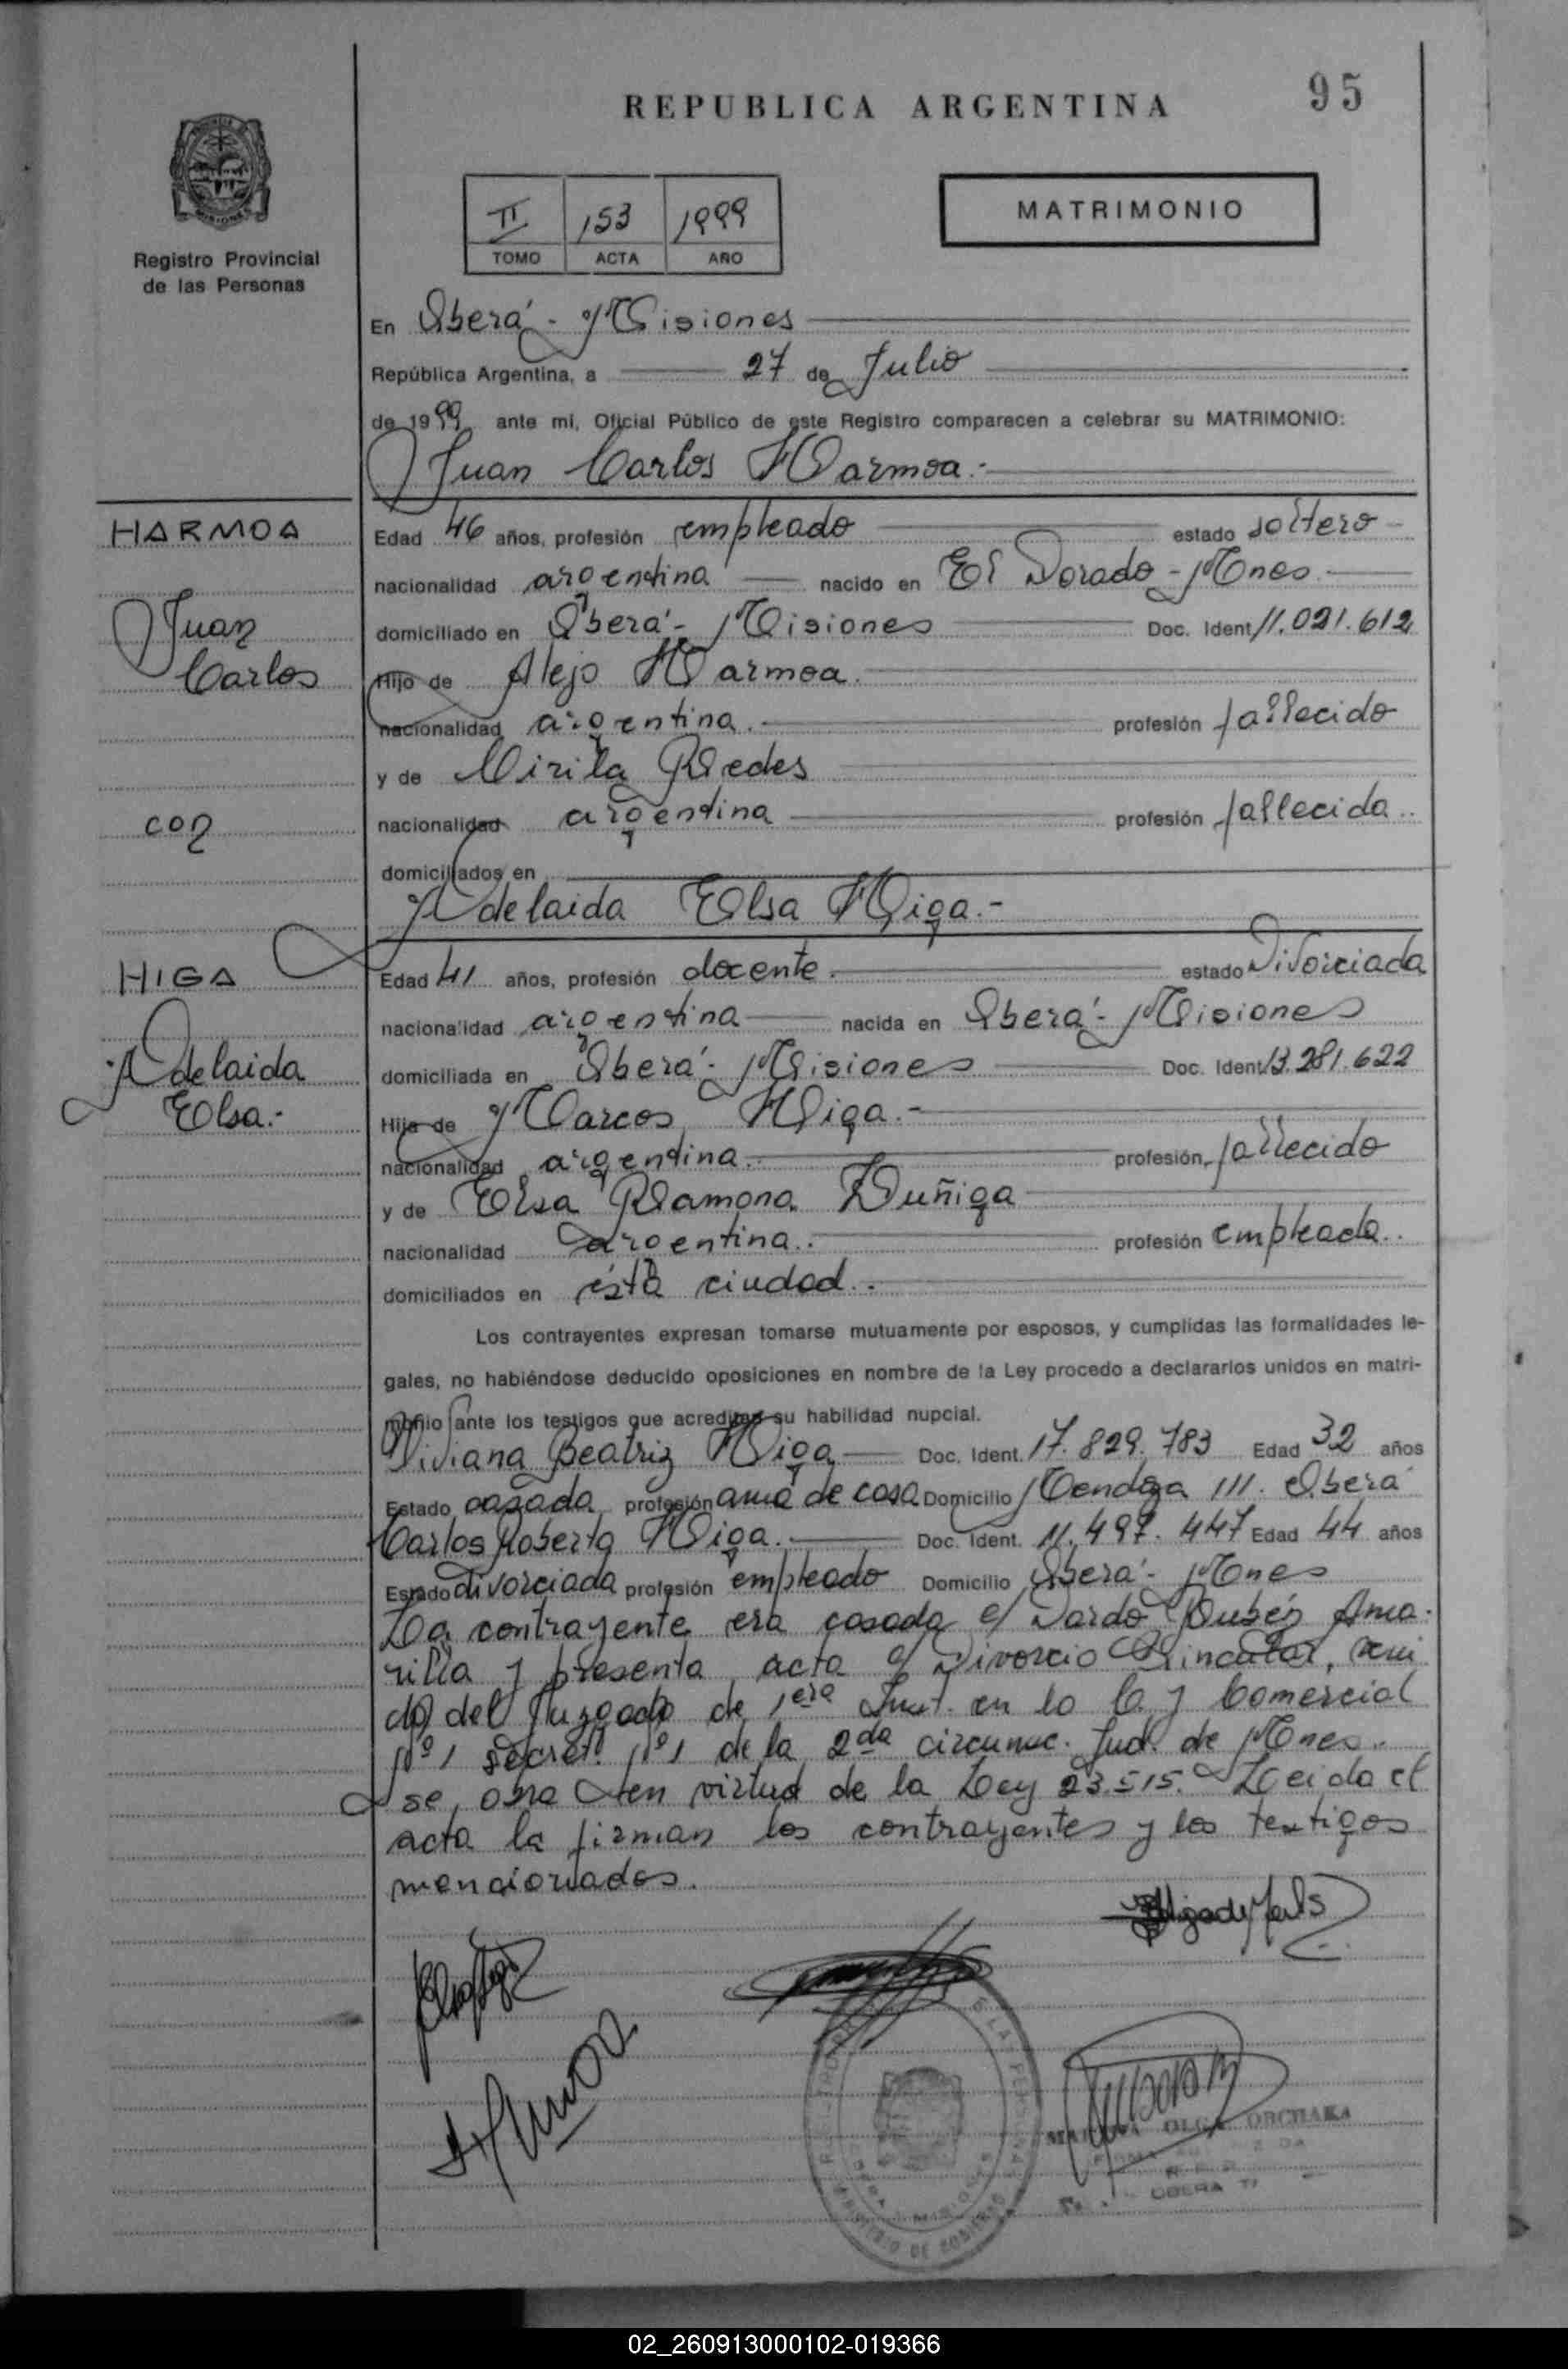 95
REPUBLICA ARGENTINA
II 153 1999
TOMO ACTA AÑO
MATRIMONIO
Registro Provincial
de las Personas
En Oberá - Misiones
República Argentina, a 27 de Julio
de 1999 ante mi, Oficial Público de este Registro comparecen a celebrar su MATRIMONIO:
Juan Carlos Harmoa.-
HARMOA
Juan
Carlos
con
HIGA
Adelaida
Elsa.-
Edad 46 años, profesión empleado estado soltero
nacionalidad argentina nacido en El Dorado - Mnes.
domiciliado en Oberá - Misiones Doc. Ident 11.021.612
Hijo de Alejo Harmoa.
nacionalidad argentina. profesión fallecido
y de Cirila Redes
nacionalidad argentina profesión fallecida
domiciliados en
Adelaida Elsa Higa.-
Edad 41 años, profesión docente. estado Divorciada
nacionalidad argentina nacida en Oberá - Misiones
domiciliada en Oberá - Misiones Doc. Ident. 13.281.622
Hija de Marcos Higa.-
nacionalidad argentina. profesión fallecido
y de Elsa Ramona Zuñiga
nacionalidad argentina.. profesión empleada..
domiciliados en ésta ciudad..
Los contrayentes expresan tomarse mutuamente por esposos, y cumplidas las formalidades le-
gales, no habiéndose deducido oposiciones en nombre de la Ley procedo a declararlos unidos en matri-
monio ante los testigos que acreditan su habilidad nupcial.
Viviana Beatriz Higa Doc. Ident. 17.829.783 Edad 32 años
Estado casada profesión ama de casa Domicilio Mendoza 111. Oberá
Carlos Roberto Higa. Doc. Ident. 11.497.447 Edad 44 años
Estado divorciada profesión empleado Domicilio Oberá - Mnes
La contrayente era casada c/ Dardo Rubén Ama-
rilla y presenta acta c/ Divorcio Vincular,
del Juzgado de 1era Inst. en lo C. y Comercial
Nº 1 secret. Nº 1 de la 2da circunsc. Jud. de Mnes.
se obra en virtud de la Ley 23.515. Leida el
acta la firman los contrayentes y los testigos
mencionados.
OLGA ORCHAKA
OBERA
MINISTERIO DE GOBIERNO
02_260913000102-019366